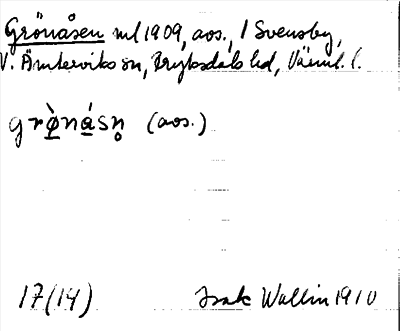 Grönåsen ml 1909, aos., / Svensby,
V. Ämterviks sn, Fryksdals hd, Värml. l.
grø̱̀ná̱sn̥ (aos.)
17(14) Isak Wallin 1910